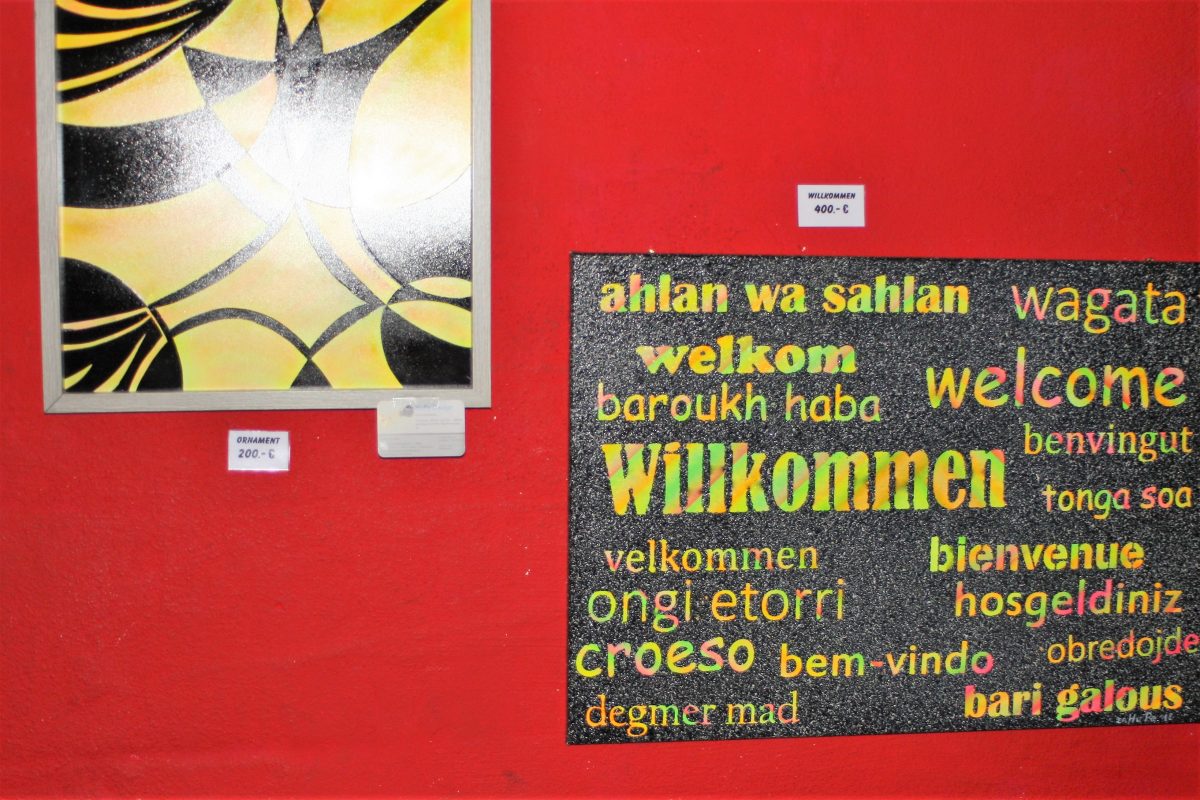 ORNAMENT
200.-€
WILLKOMMEN
400.-€
ahlan wa sahlan
wagata
welkom
welcome
baroukh haba
benvingut
Willkommen
tonga soa
velkommen
bienvenue
ongi etorri
hosgeldiniz
croeso
bem-vindo
obredojde
degmer mad
bari galous